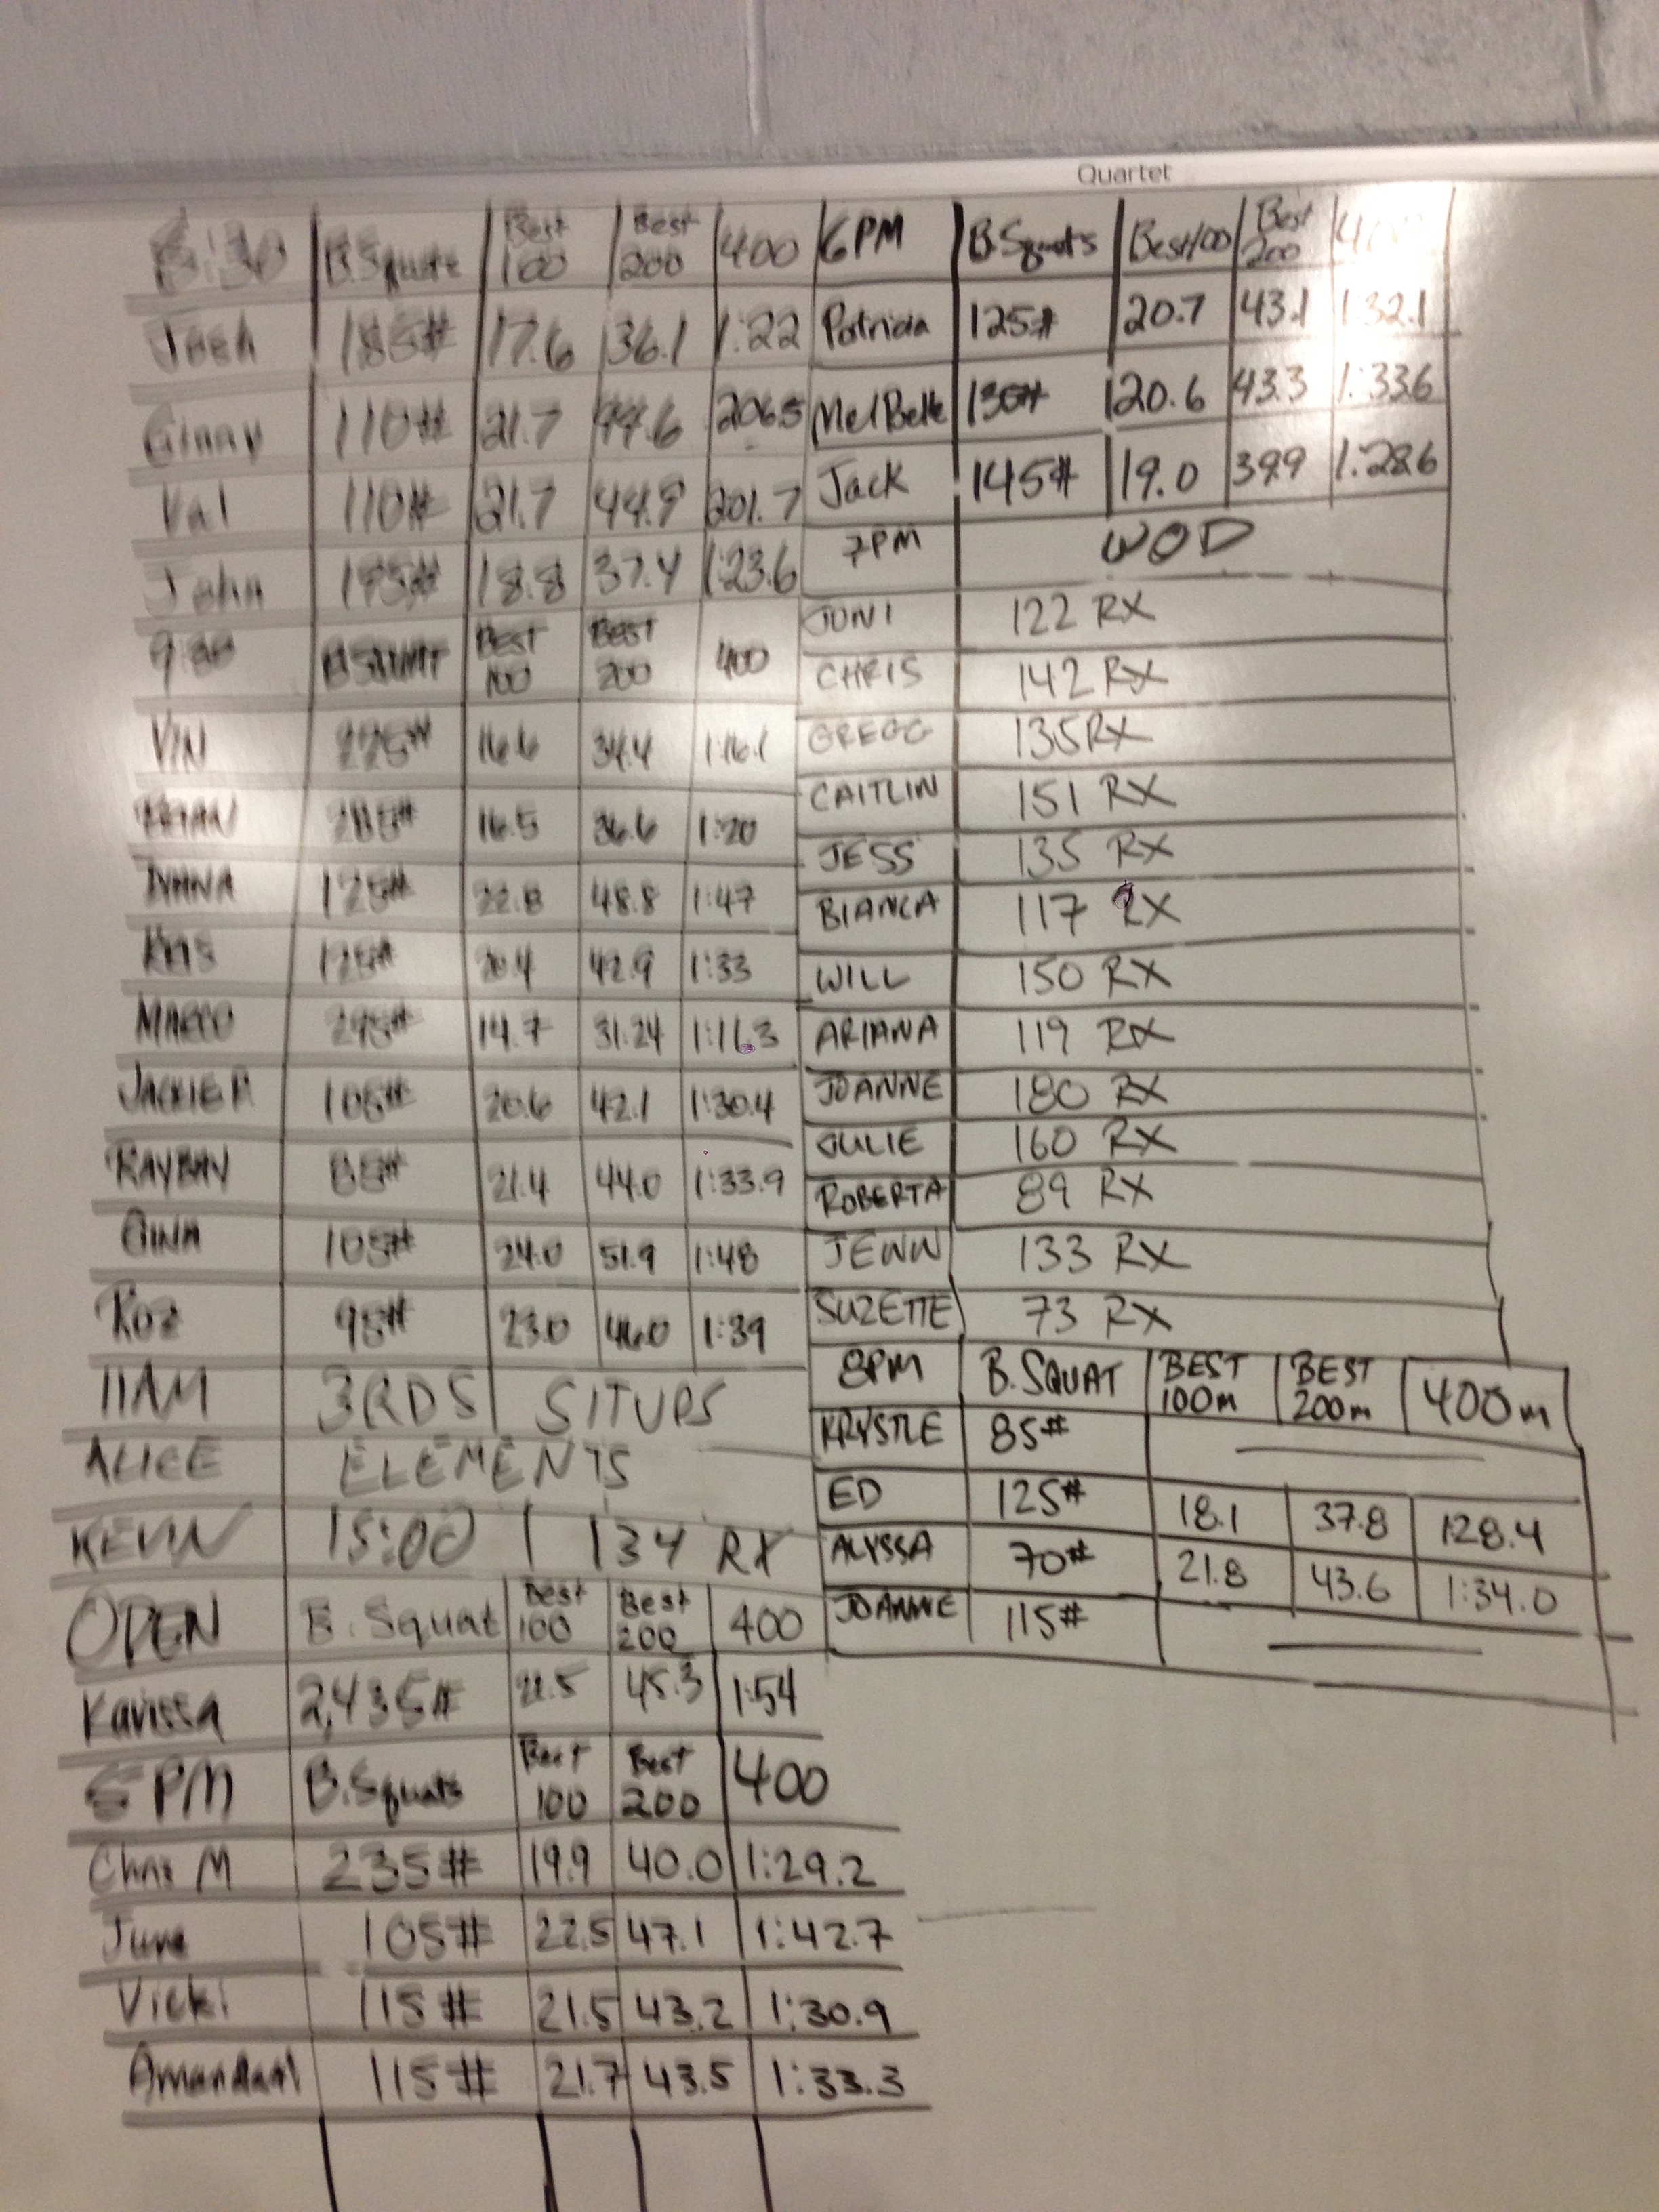 Quartet
B.Squats Best 100 Best 200 400
Josh 185# 17.6 36.1 1:22
Ginny 110# 21.7 44.6 206.5
Val 110# 21.7 44.9 201.7
John 18.8 37.4 1:23.6
B SQUAT BEST 100 BEST 200 400
VIN 225# 16.6 34.4 1:16.1
16.5 36.6 1:20
125# 22.8 48.8 1:47
KRIS 125# 20.4 42.9 1:33
MARCO 14.7 31.24 1:16.3
JACKIE 105# 20.6 42.1 1:30.4
21.4 44.0 1:33.9
GINA 105# 24.0 51.9 1:48
Roz 95# 23.0 46.0 1:39
11AM 3RDS SITUPS
ALICE ELEMENTS
KEVIN 15:00 134 RX
OPEN B. Squat Best 100 Best 200 400
Karissa 2,435# 45.3 1:54
5PM B.Squats Best 100 Best 200 400
Chris M 235# 19.9 40.0 1:29.2
June 105# 22.5 47.1 1:42.7
Vicki 115# 21.5 43.2 1:30.9
115# 21.7 43.5 1:33.3
6PM B.Squats Best 100 Best 200
Patricia 125# 20.7 43.1 1:32.1
MelBelle 20.6 43.3 1:33.6
Jack 145# 19.0 39.9 1:28.6
7PM WOD
JONI 122 RX
CHRIS 142 RX
GREGG 135 RX
CAITLIN 151 RX
JESS 135 RX
BIANCA 117 RX
WILL 150 RX
ARIANA 119 RX
JOANNE 180 RX
JULIE 160 RX
ROBERTA 89 RX
JENN 133 RX
SUZETTE 73 RX
8PM B. SQUAT BEST 100m BEST 200m 400m
KRYSTLE 85#
ED 125# 18.1 37.8 128.4
ALYSSA 70# 21.8 43.6 1:34.0
JOANNE 115#